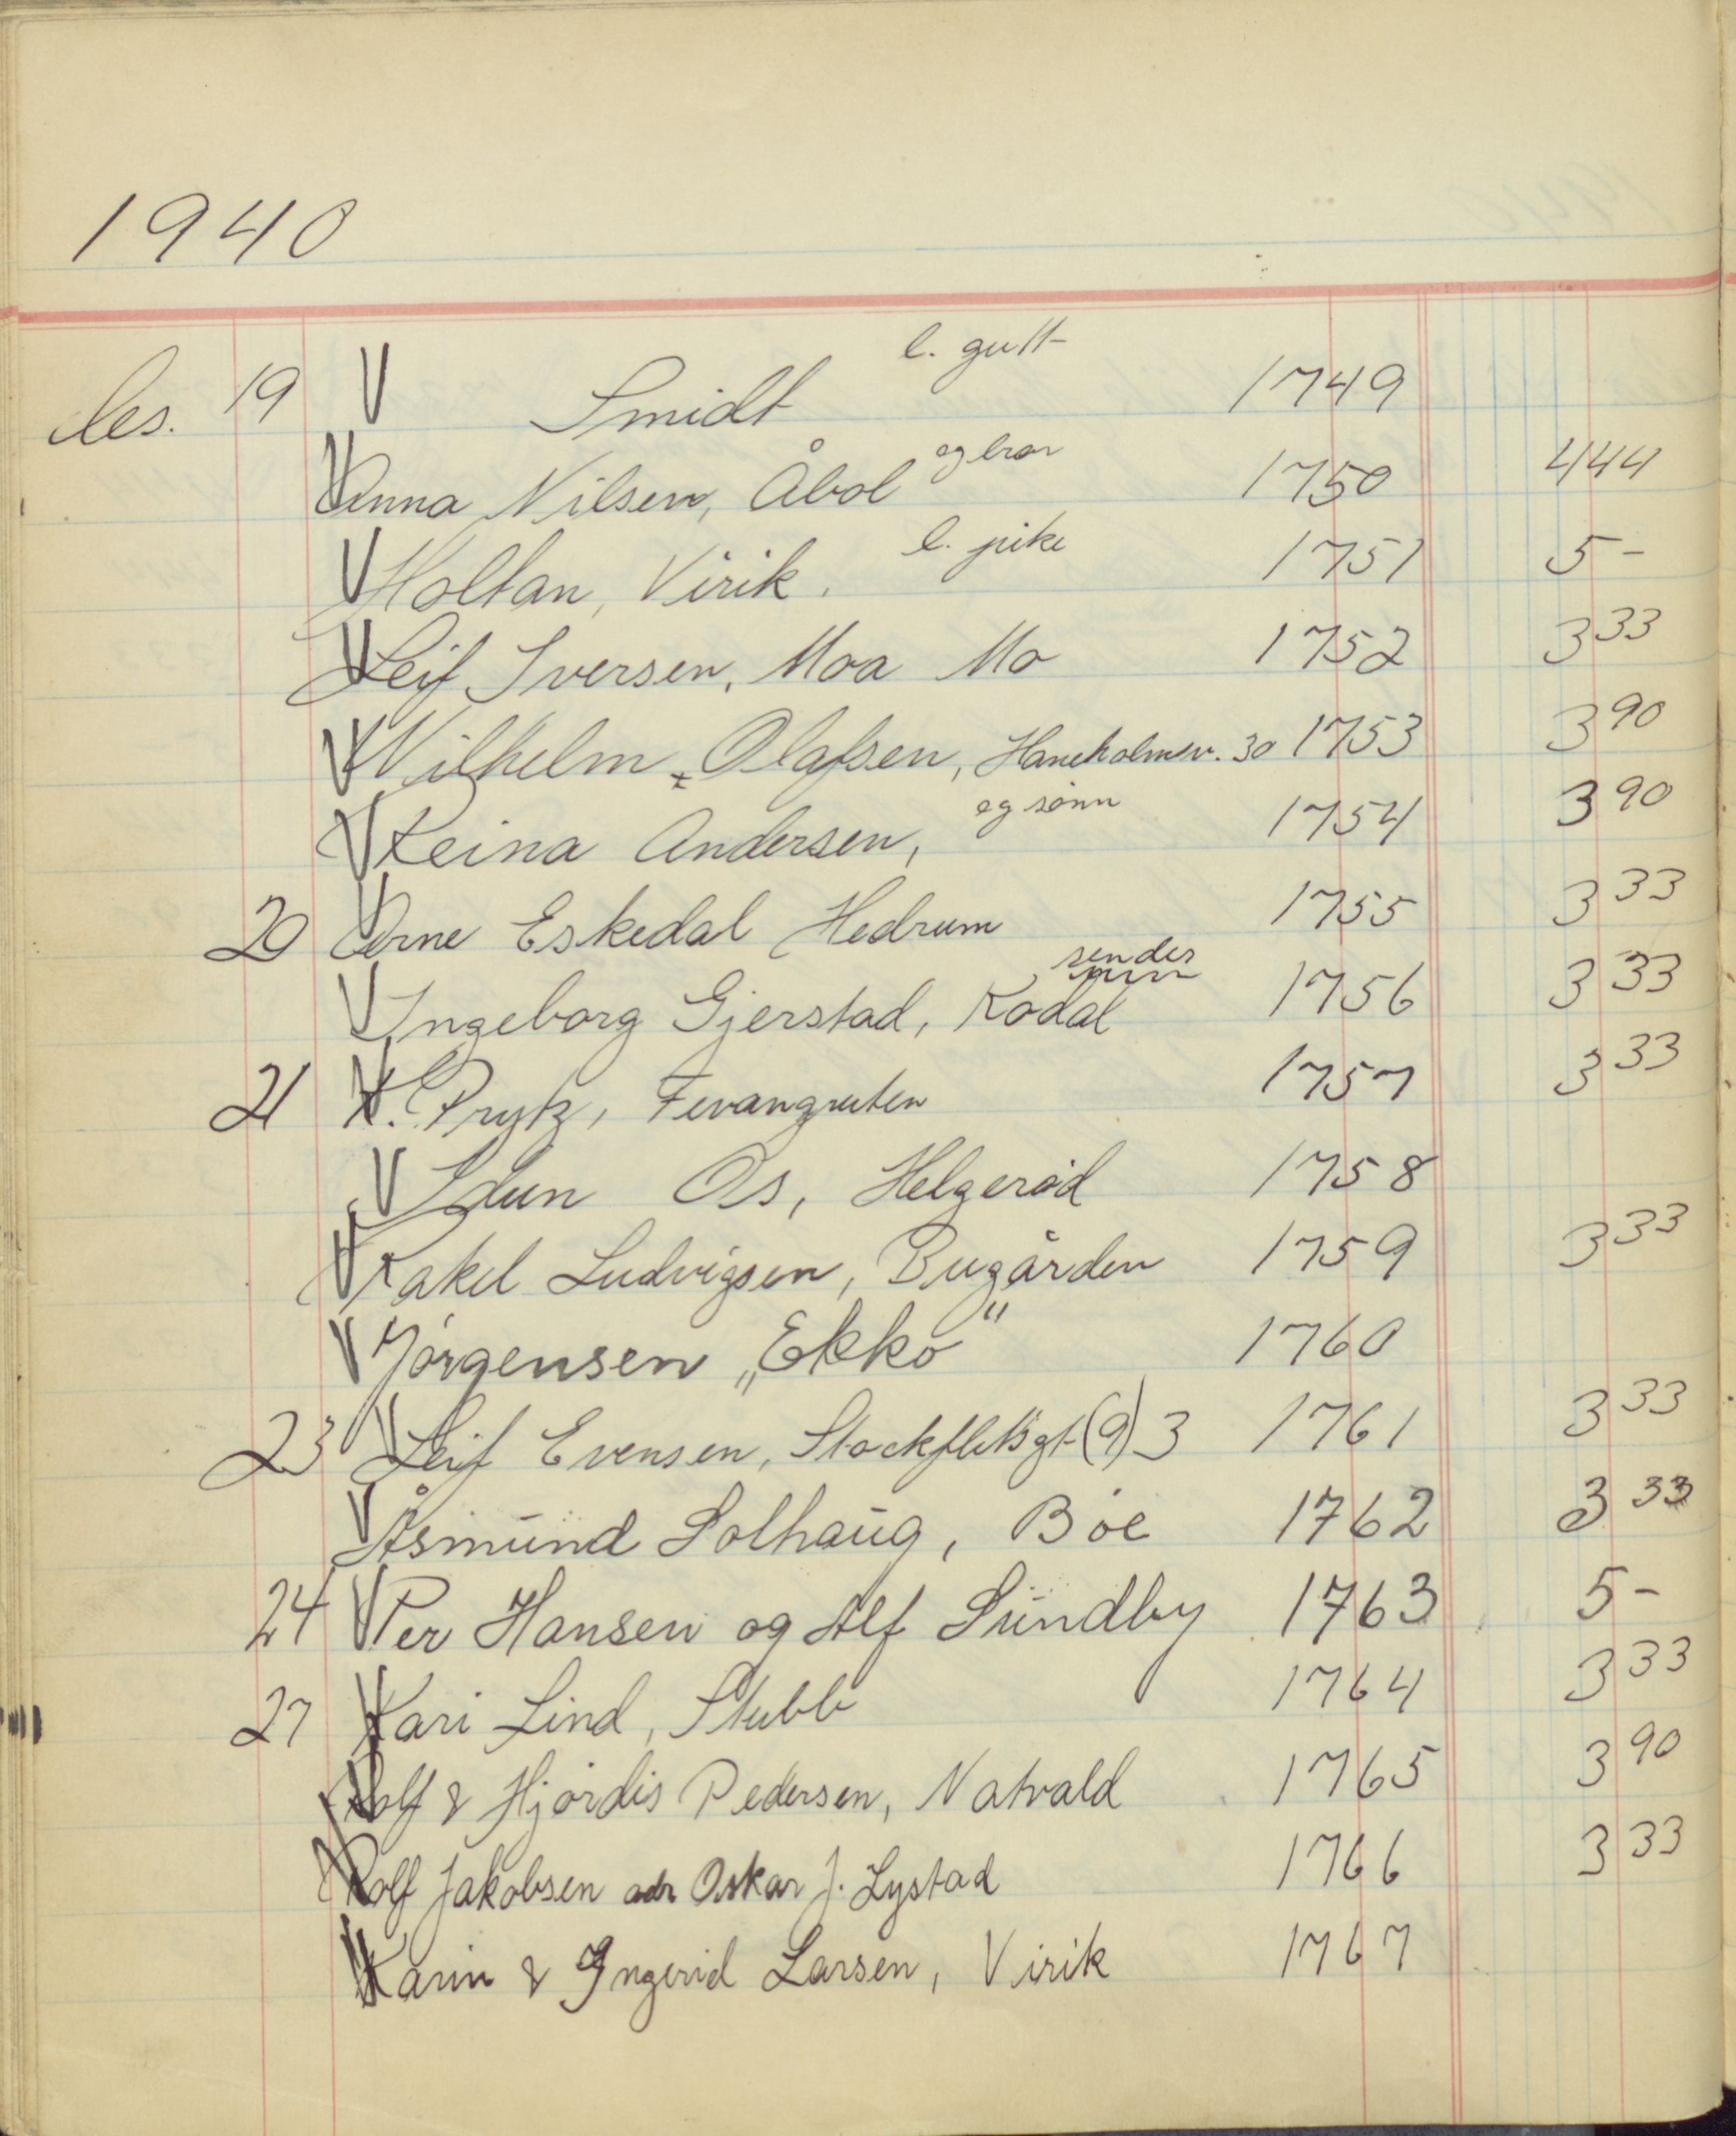 1940
des. 19 V Smidt l. gutt 1749
V Anna Nilsen, Åbol og bror 1750 4 44
V Holtan, Virik. l. pike 1751 5 -
V Leif Iversen, Moa Mo 1752 3 33
V Wilhelm Olafsen, Haneholmsv. 30 1753 3 90
V Reina Andersen, og sønn 1754 3 90
20 V Arne Eskedal Hedrum 1755 3 33
V Ingeborg Gjerstad, Kodal sendes 1756 3 33
21 V K. Prytz, Fevangruten 1757 3 33
V Idun Os, Helgerød 1758
V Rakel Ludvigsen, Bugården 1759 3 33
V Jørgensen „Ekko" 1760
23 V Leif Evensen, Stockfletsgt (9) 3 1761 3 33
V Åsmund Solhaug, Bøe 1762 3 33
24 V Per Hansen og Alf Sundby 1763 5 -
27 V Kari Lind, Stubb 1764 3 33
V Rolf & Hjørdis Pedersen, Natvald 1765 3 90
V Rolf Jakobsen adr Oskar J. Lystad 1766 3 33
V Karin & Ingerid Larsen, Virik 1767